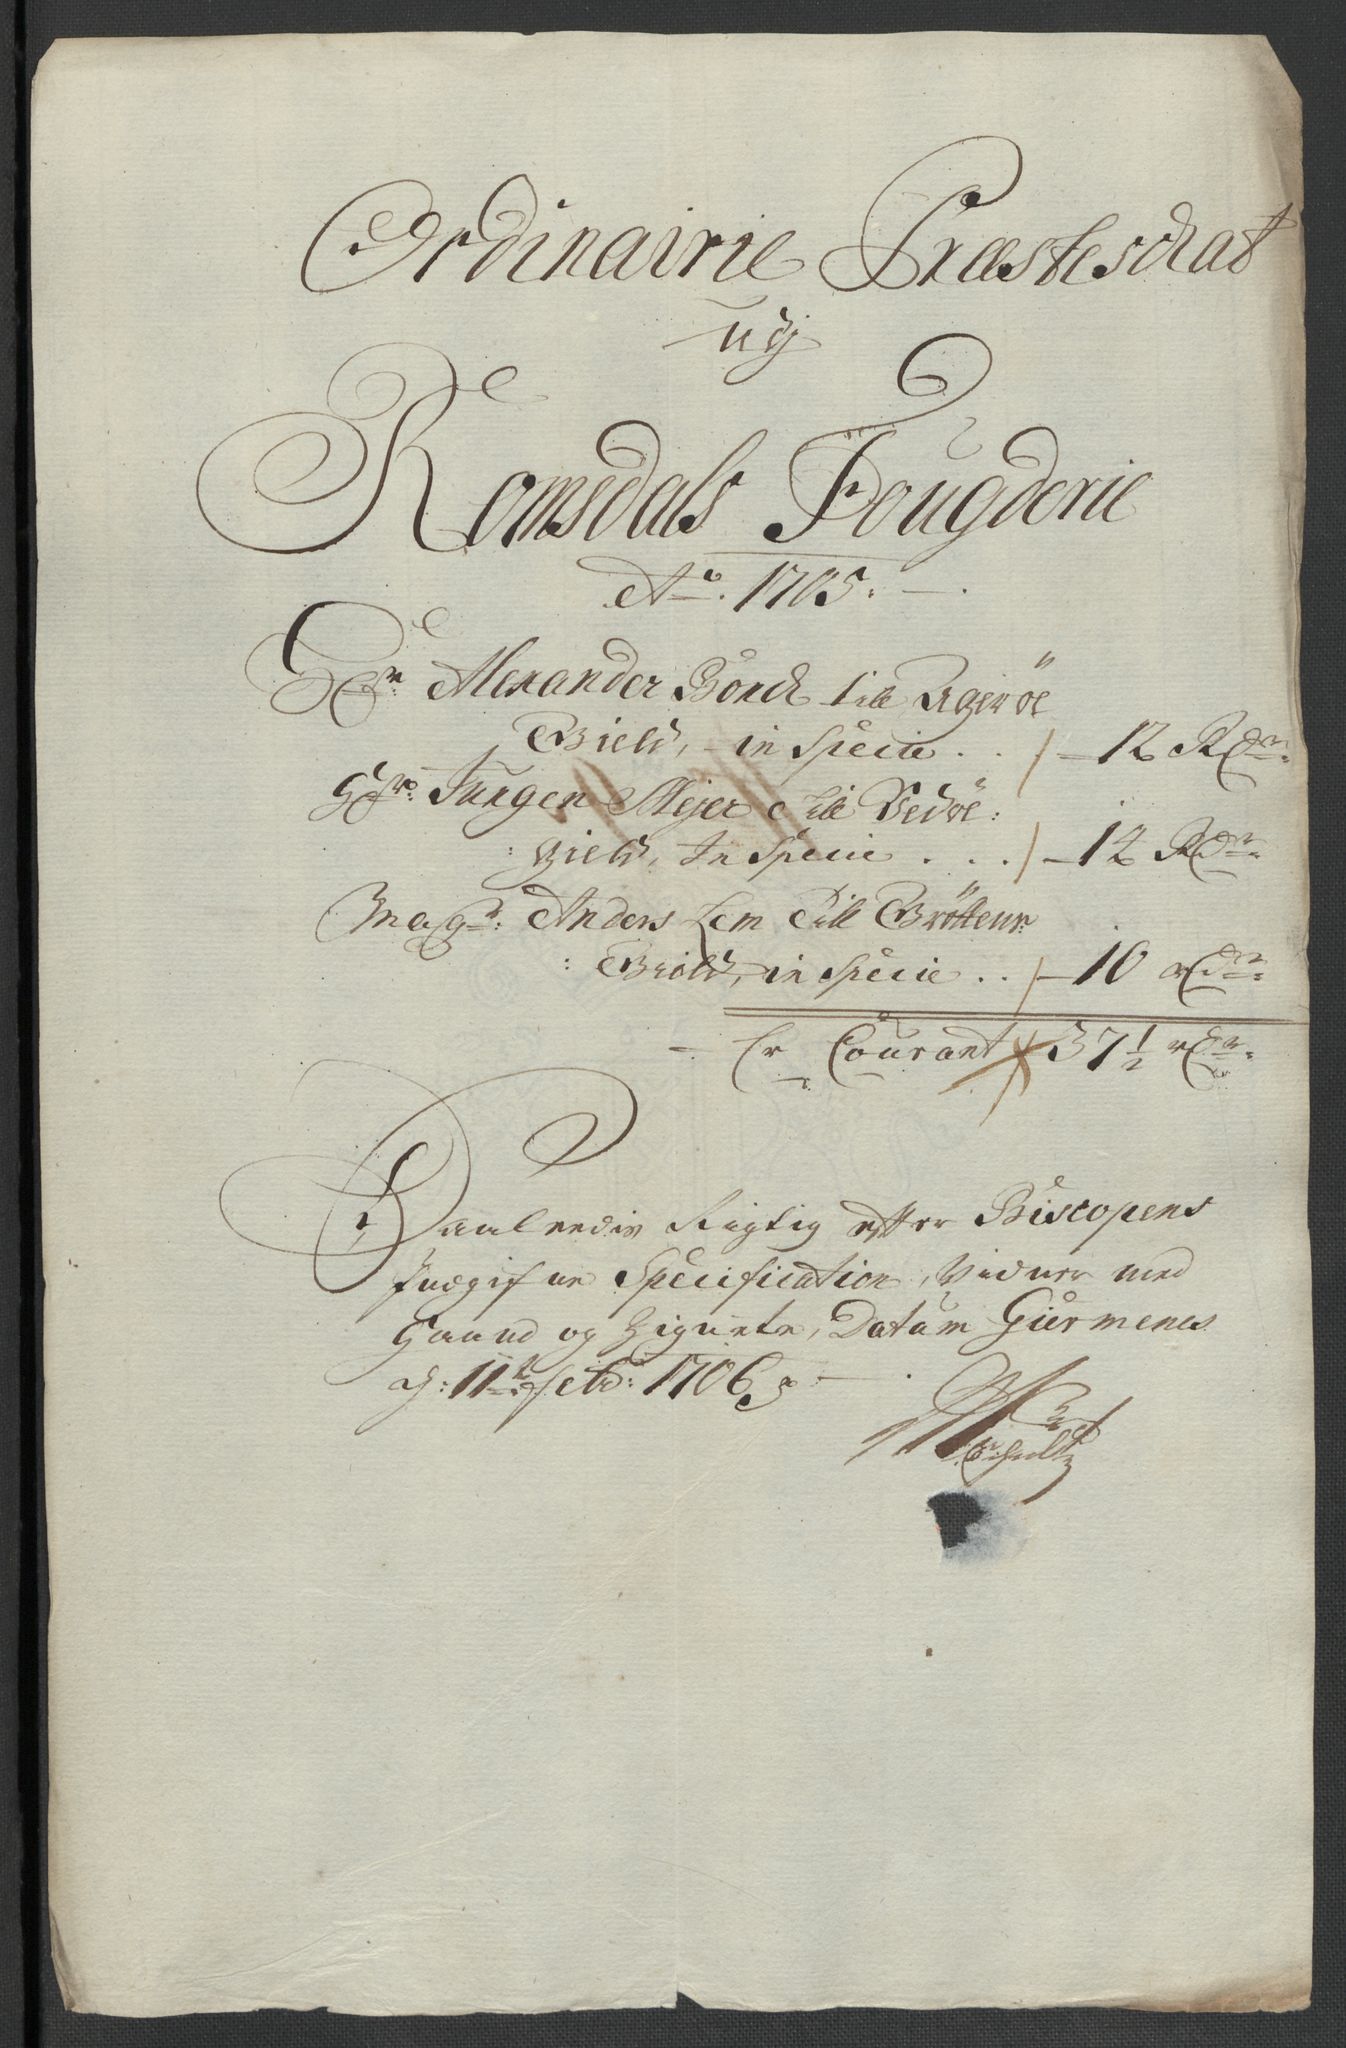 Ordinairie Præsteschat
udj
Romsdals Fougderie
Ao. 1705.
Hr. Alexander Borch till Agerøe
Gield, in Specie . . 12 Rdr
Hr: Jungen Mejer Till Vedøe:
gield, In Specie . . . 12 Rdr
Magr: Anders Lem Till Grøtten
Gield, in Specie . . 10 Rdr
Er Courant 37½ Rdr
Saaledis Rigtig efter Biscopens
Indgifne Specification, Vidner med
Haand og Zignete, Datum Giermenes
d: 11te 1706
Schultz